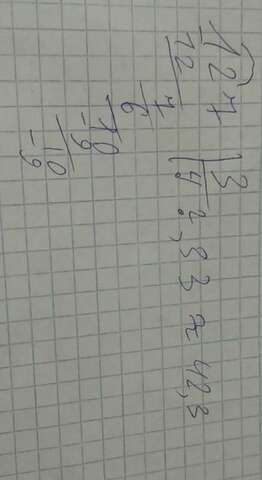 -127 | 3
12 | 42,33 ≈ 42,3
7
6
10
-9
10
-9